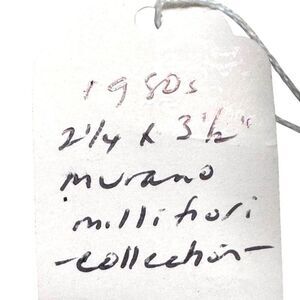 1980s
2 1/4 x 3 1/2"
murano
millifiori
-collection-